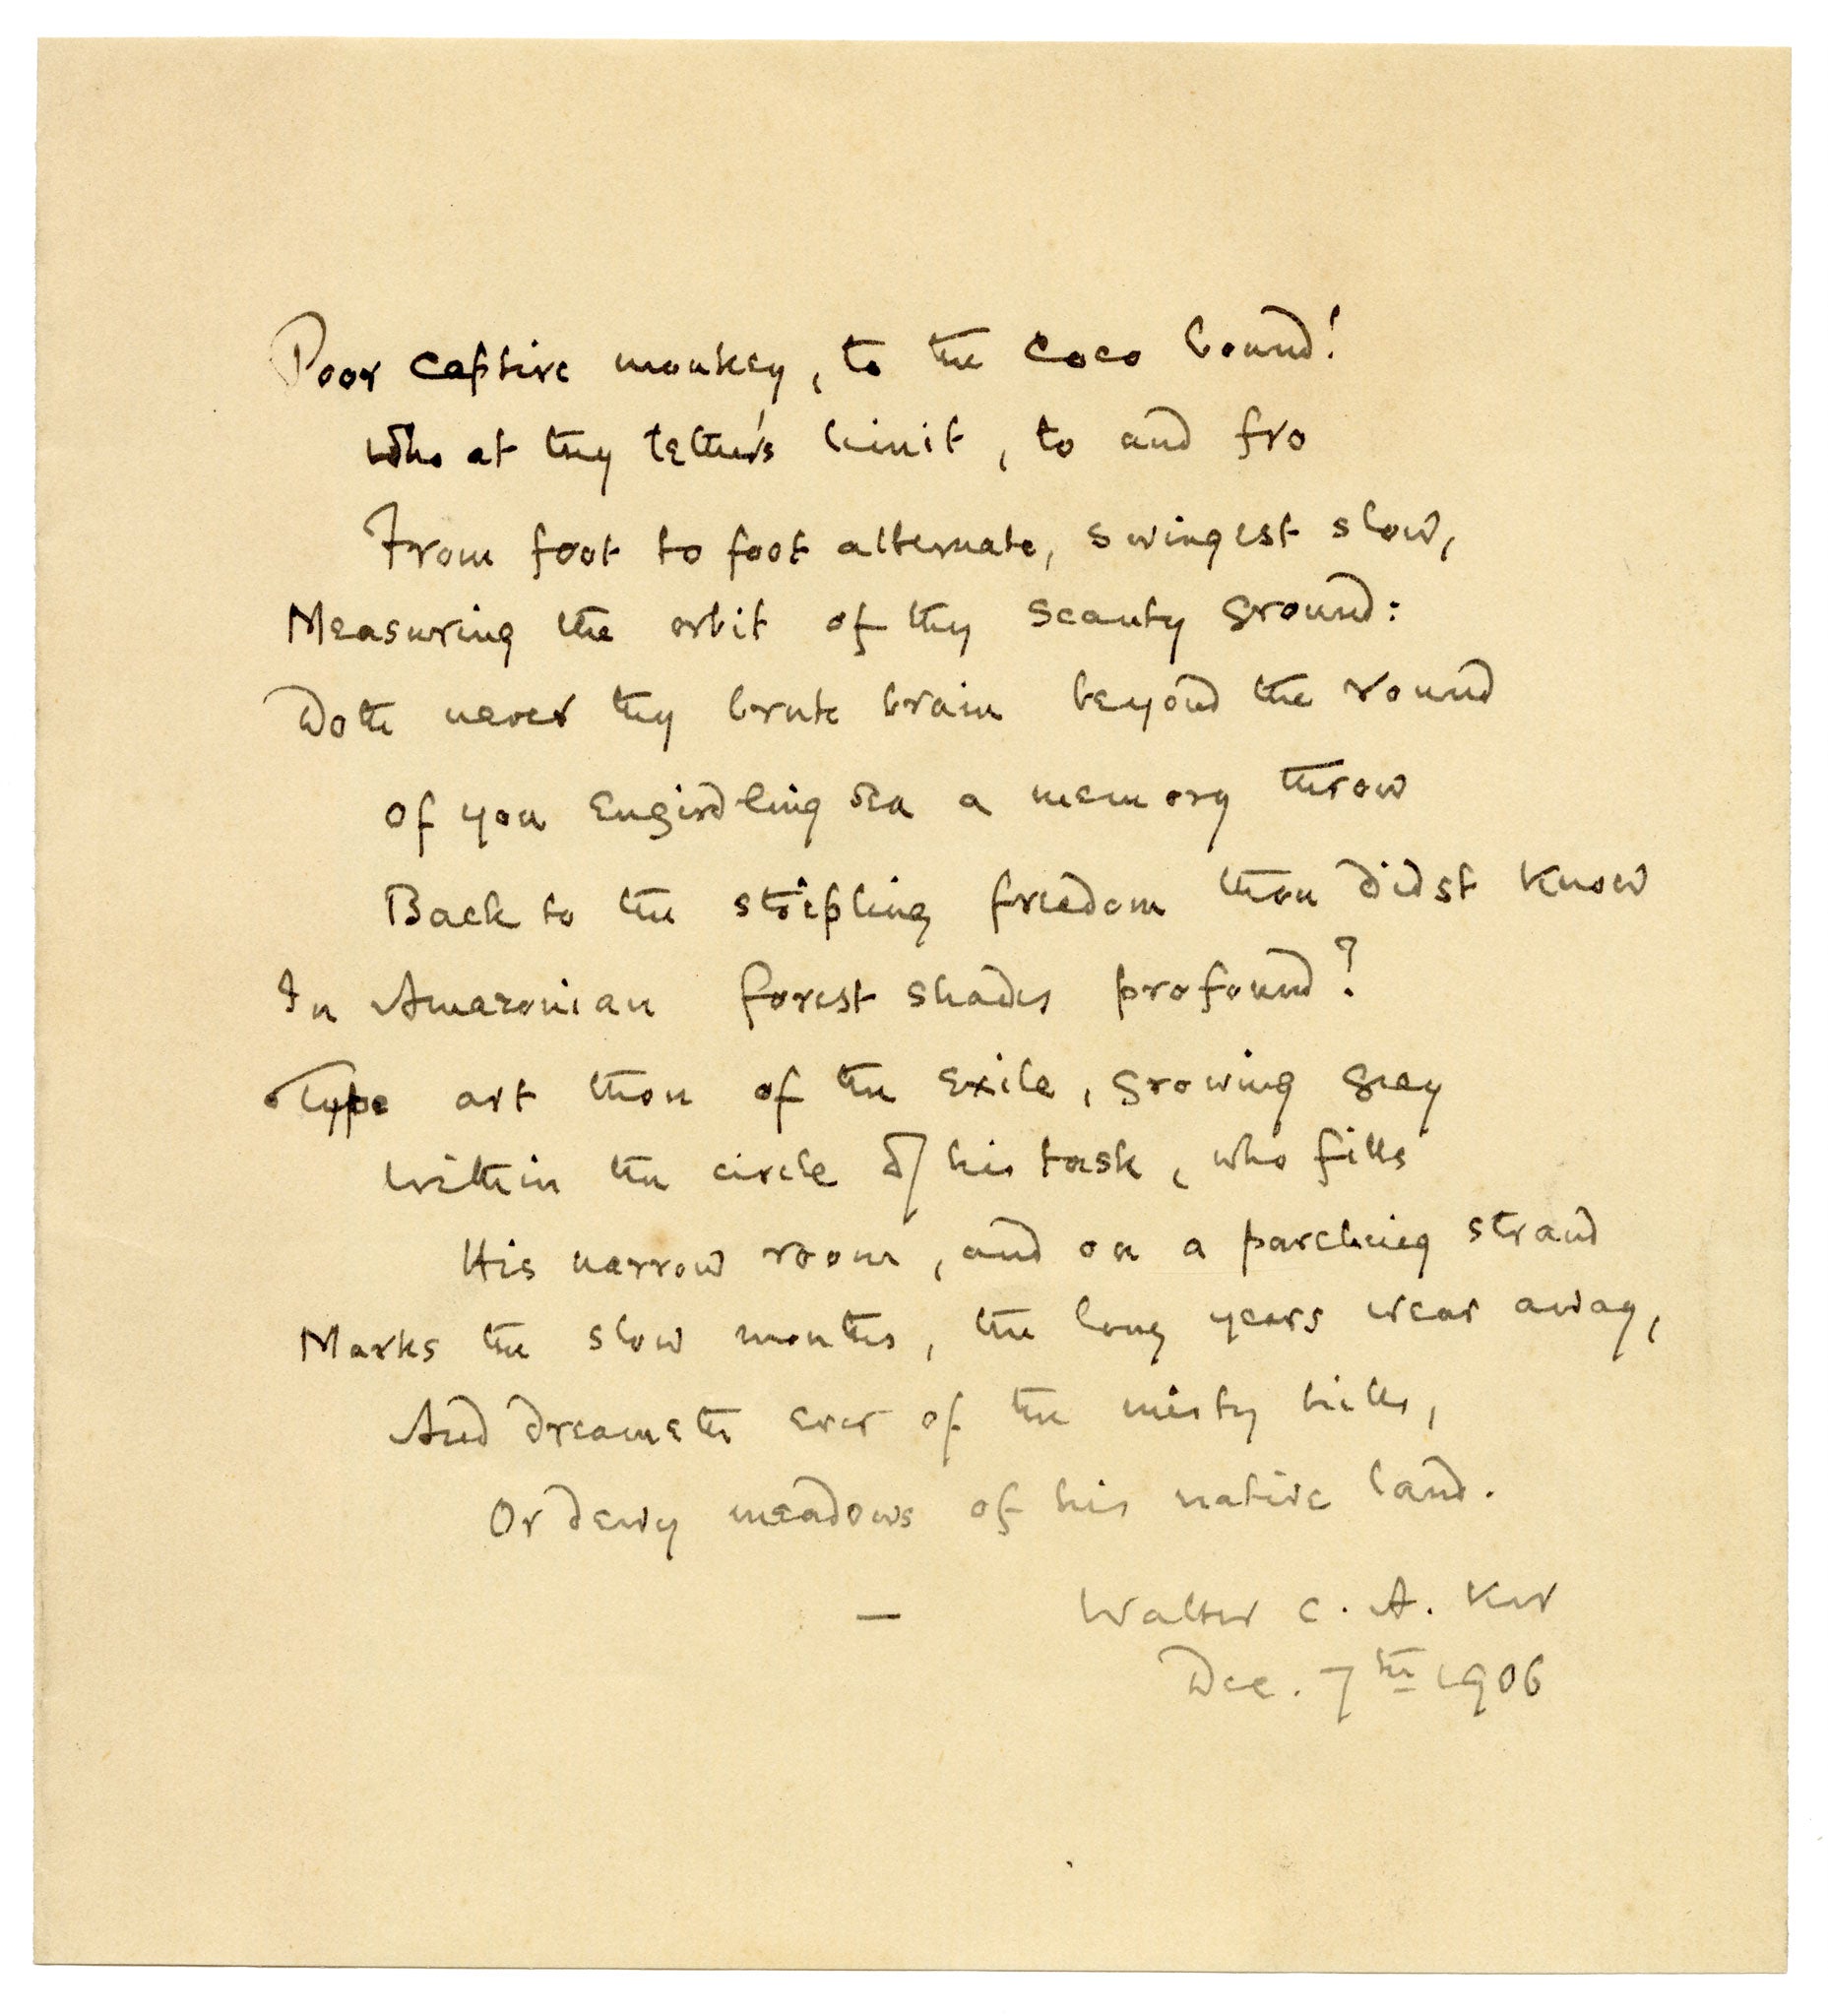 Poor captive monkey, to the coco bound!
Who at thy tether's limit, to and fro
From foot to foot alternate, swingest slow,
Measuring the orbit of thy scanty ground:
Doth never thy brute brain beyond the round
Of yon engirdling sea a memory throw
Back to the stripling freedom thou didst know
In Amazonian forest shades profound?
Type art thou of the exile, growing grey
Within the circle of his task, who fills
His narrow room, and on a parching strand
Marks the slow months, the long years wear away,
And dreameth ever of the misty hills,
Or dewy meadows of his native land.
— Walter C. A. Ker
Dec. 7th 1906